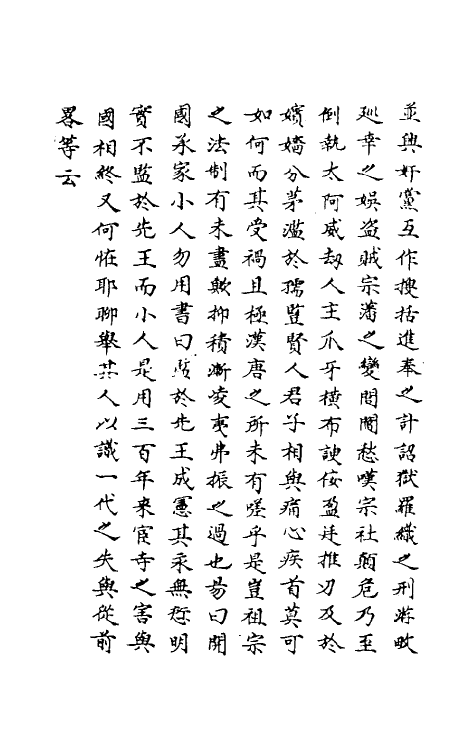 並興奸黨互作搜括進奉之計詔獄羅織之刑游畋
巡幸之娛盜賊宗藩之變閭閻愁嘆宗社顛危乃至
倒執太阿威劫人主爪牙橫布諛佞盈廷推刃及於
嬪嬙分茅濫於孺豎賢人君子相與痛心疾首莫可
如何而其受禍且極漢唐之所未有嗟乎是豈祖宗
之法制有未盡歟抑積漸凌夷弗振之過也易曰開
國承家小人勿用書曰監於先王成憲其永無愆明
實不監於先王而小人是用三百年來宦寺之害與
國相終又何恠耶聊舉其人以識一代之失與從前
畧等云